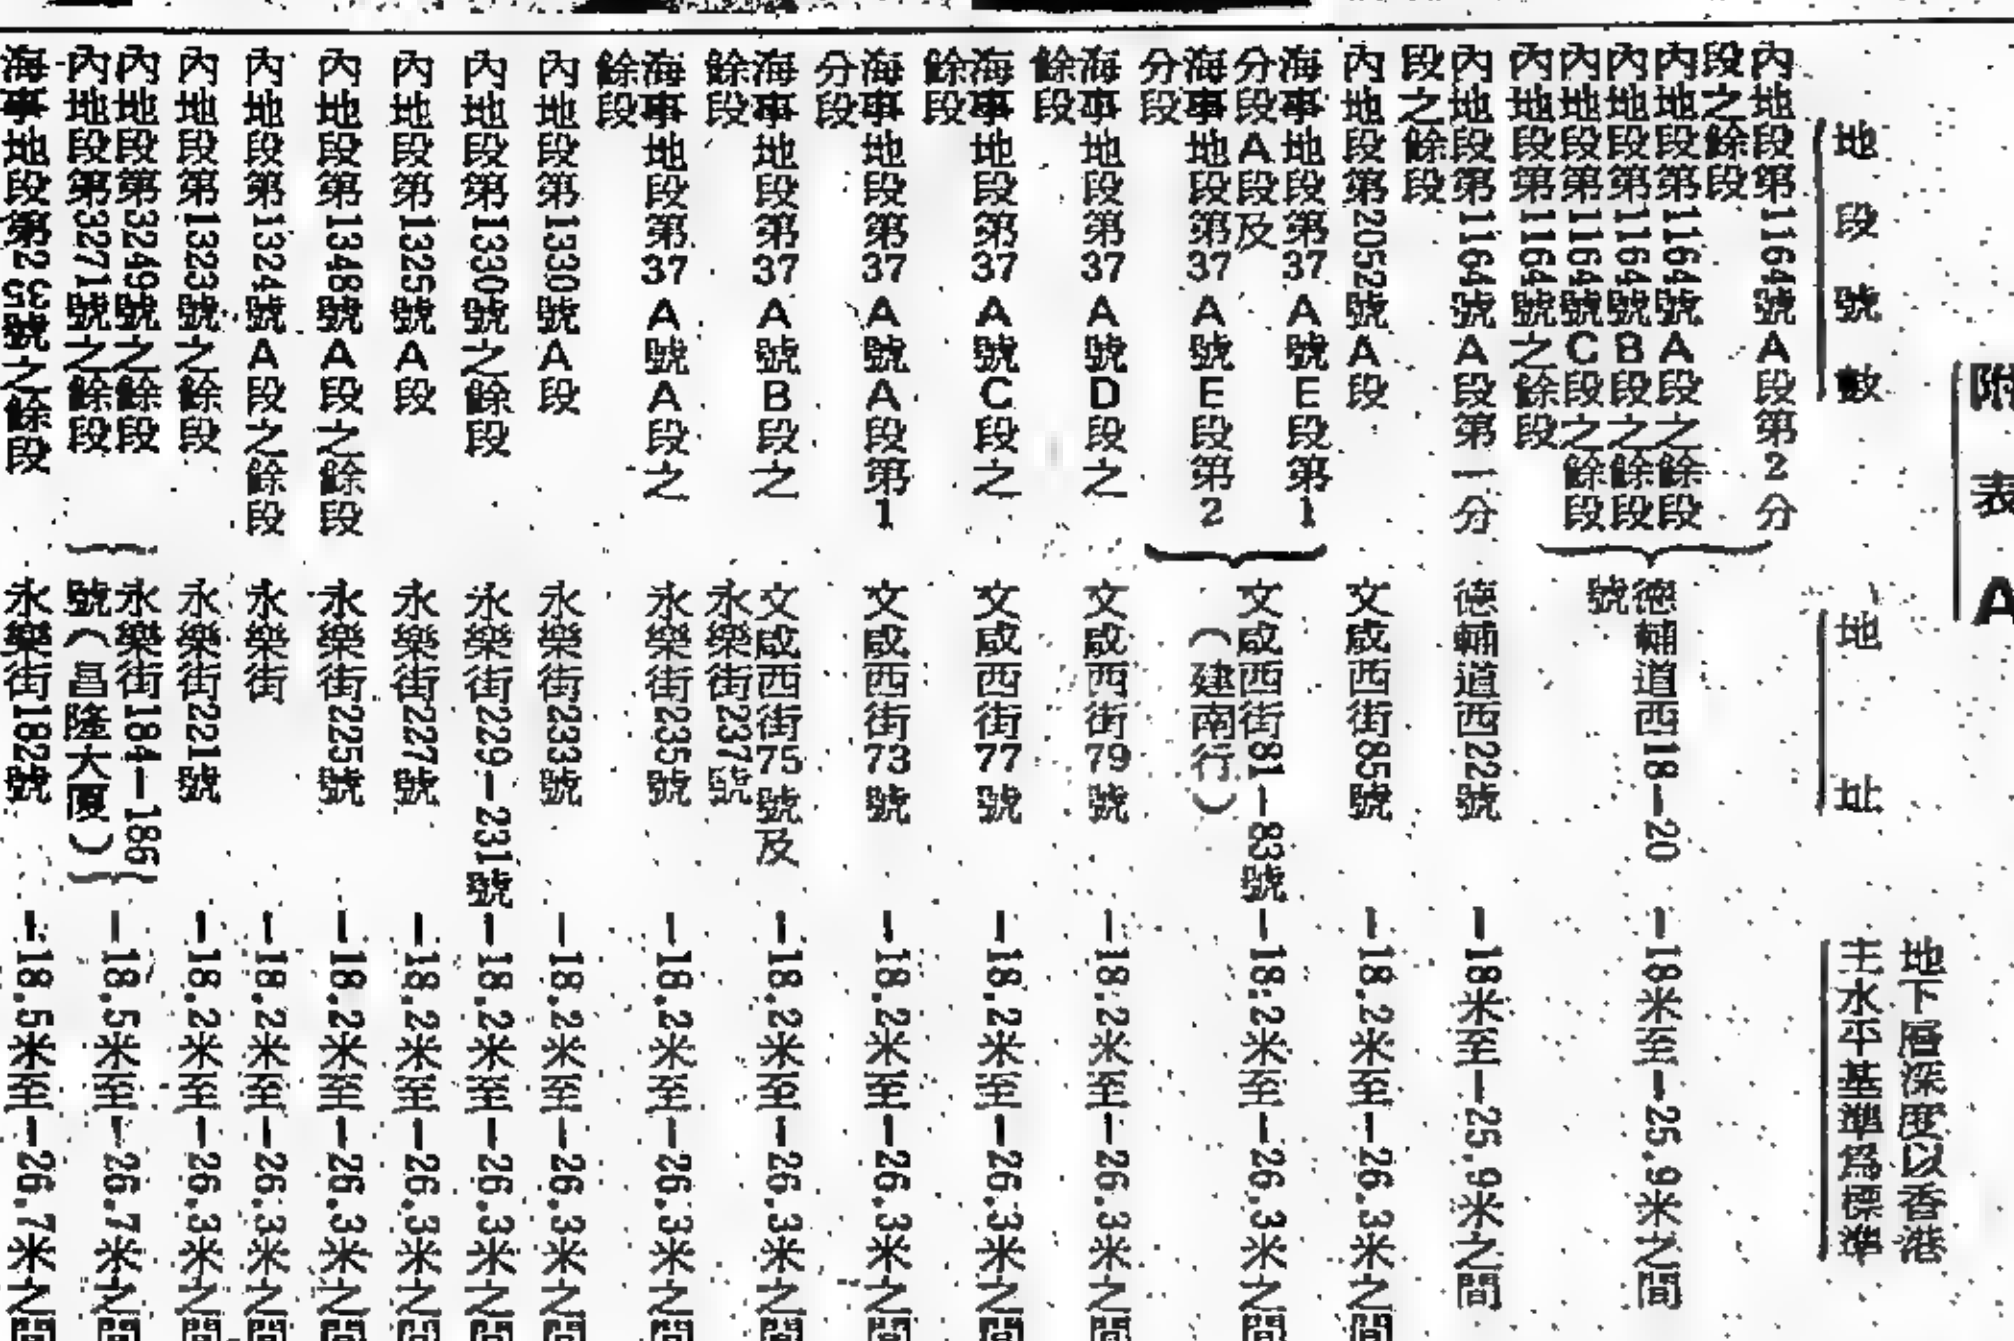 附表A
地段號數
地址
地下層深度以香港
主水平基準為標準
內地段第1164號A段第2分
段之餘段
內地段第1164號A段之餘段
內地段第1164號B段之餘段
內地段第1164號C段之餘段
內地段第1164號之餘段
德輔道西18—20
號
—18米至—25.9米之間
內地段第1164號A段第一分
段之餘段
德輔道西22號
—18米至—25.9米之間
內地段第2052號A段
文咸西街85號
—18.2米至—26.3米之間
海事地段第37A號E段第1
分段A段及
海事地段第37A號E段第2
分段
文咸西街81—83號
(建南行)
—18.2米至—26.3米之間
海事地段第37A號D段之
餘段
文咸西街79號
—18.2米至—26.3米之間
海事地段第37A號C段之
餘段
文咸西街77號
—18.2米至—26.3米之間
海事地段第37A號A段第1
分段
文咸西街73號
—18.2米至—26.3米之間
海事地段第37A號B段之
餘段
文咸西街75號及
永樂街237號
—18.2米至—26.3米之間
海事地段第37A號A段之
餘段
永樂街235號
—18.2米至—26.3米之間
內地段第1330號A段
永樂街233號
—18.2米至—26.3米之間
內地段第1330號之餘段
永樂街229—231號
—18.2米至—26.3米之間
內地段第1325號A段
永樂街227號
—18.2米至—26.3米之間
內地段第1348號A段之餘段
永樂街225號
—18.2米至—26.3米之間
內地段第1324號A段之餘段
永樂街
—18.2米至—26.3米之間
內地段第1323號之餘段
永樂街221號
—18.2米至—26.3米之間
內地段第3249號之餘段
內地段第3271號之餘段
永樂街184—186
號(昌隆大厦)
—18.5米至—26.7米之間
海事地段第2 號之餘段
永樂街182號
—18.5米至—26.7米之間